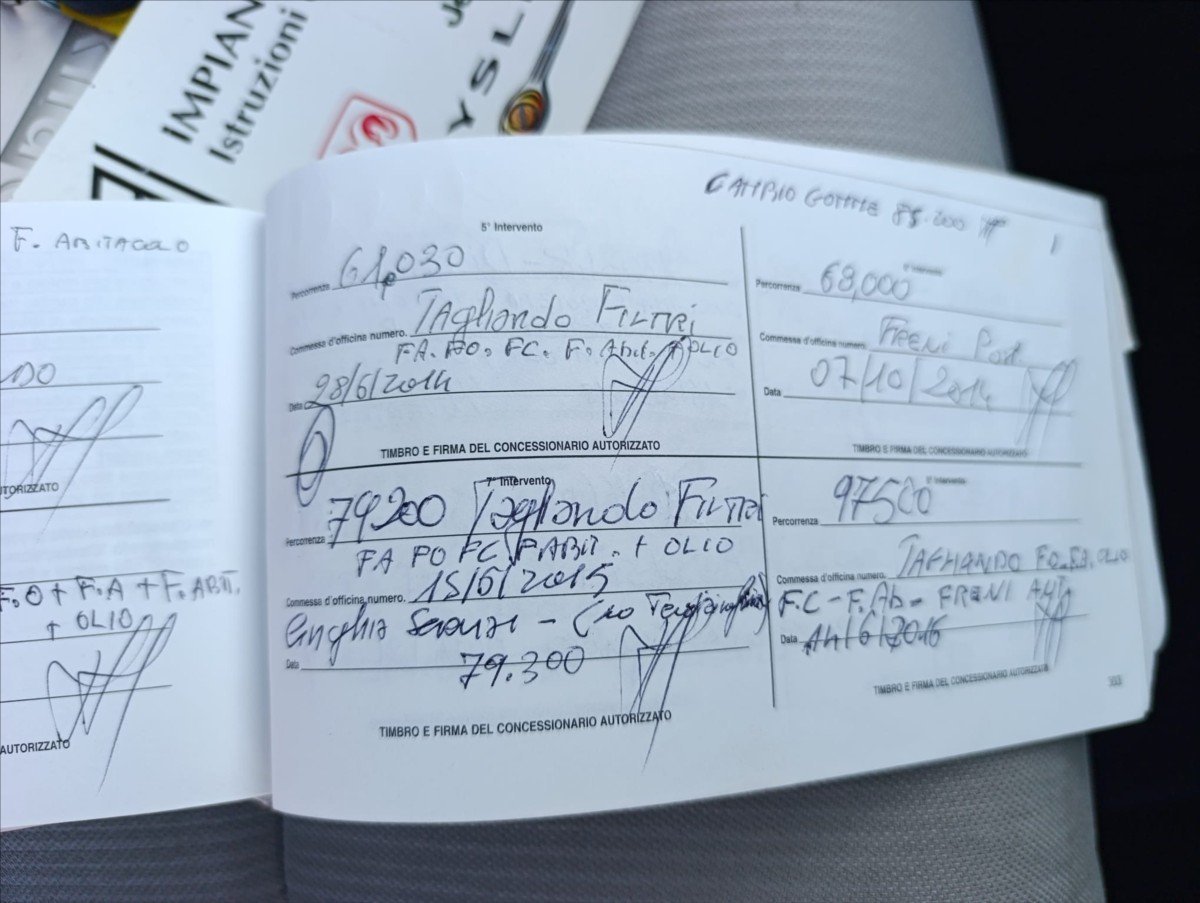 IMPIAN
Istruzioni
Je
YSL
F. ABITACOLO
DO
TORIZZATO
F.O + F.A + F. ABIT.
+ OLIO
AUTORIZZATO
CAMBIO GOMME 85.200
5° Intervento
Percorrenza 61,030
Commessa d'officina numero. Tagliando FILTRI
FA. FO. FC. F. Abit. + OLIO
Data 28/6/2014
TIMBRO E FIRMA DEL CONCESSIONARIO AUTORIZZATO
6° Intervento
Percorrenza 68,000
Commessa d'officina numero. FRENI Post.
Data 07/10/2014
TIMBRO E FIRMA DEL CONCESSIONARIO AUTORIZZATO
7° Intervento
Percorrenza 79200 Tagliando FILTRI
FA FO FC FABIT. + OLIO
Commessa d'officina numero. 15/6/2015
Cinghia Servizi - (no
Data 79.300
TIMBRO E FIRMA DEL CONCESSIONARIO AUTORIZZATO
8° Intervento
Percorrenza 97500
Commessa d'officina numero. TAGLIANDO FO. FA. OLIO
F.C - F.Ab - FRENI ANT.
Data 14/6/2016
TIMBRO E FIRMA DEL CONCESSIONARIO AUTORIZZATO